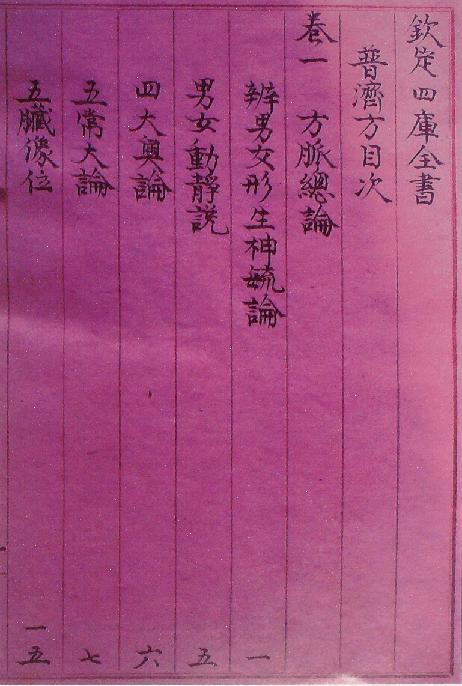 欽定四庫全書
普濟方目次
卷一 方脈總論
辨男女形生神毓論 一
男女動靜説 五
四大奧論 六
五常大論 七
五臟像位 一五